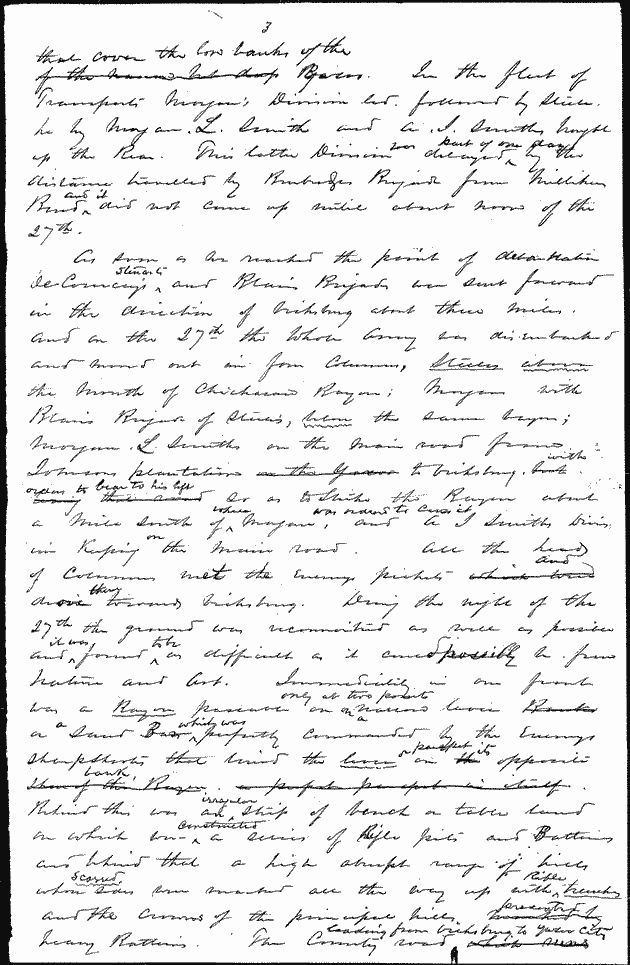 3
that cover the low banks of the
of the narrow but deep Rivers. In the fleet of
Transports Morgan's Division led. followed by Steele.
he by Morgan. L. Smith and A. J. Smiths brought
up the Rear. This latter Division was delayed part of one day by the
distance travelled by Burbridges Brigade from Millikens
Bend, and it did not come up until about noon of the
27th.
As soon as he reached the point of debarkation
De Courcey's, Stuarts and Blairs Brigades was sent forward
in the direction of Vicksburg about three miles.
and on the 27th the whole army was disembarked
and moved out in four Columns, Steeles above
the Mouth of Chickasaw Bayou; Morgan with
Blairs Brigade of Steeles, below the same bayou;
Morgan. L Smiths on the main road from
Johnsons plantation on the Yazoo to Vicksburg. with
orders to bear to his left so as to Strike the Bayou about
a Mile south of where Morgan, was ordered to cross it and A J Smiths Divn,
in Keeping on the main road. All the heads
of Columns met the Enemys pickets and
drove them towards Vicksburg. During the night of the
27th the ground was reconnoitred as well as possible
and it was, found to be as difficult as it could possibly be from
Nature and Art. Immediately in our front
was a Bayou passable only at two points on a narrow levee
or a Sand Bar which was perfectly commanded by the Enemys
sharpshooters that lined the levee or parapet on its opposite
bank, shore of the Bayou. a perfect parapet in itself.
Behind this was an irregular strip of bench or table land
on which was constructed a series of Rifle pits and Batteries
and behind that a high abrupt range of hills
whose scarred sides were marked all the way up with Rifle trenches
and the crowns of the principal hills, presented
heavy Batteries. The County road leading from Vicksburg to Yazoo City